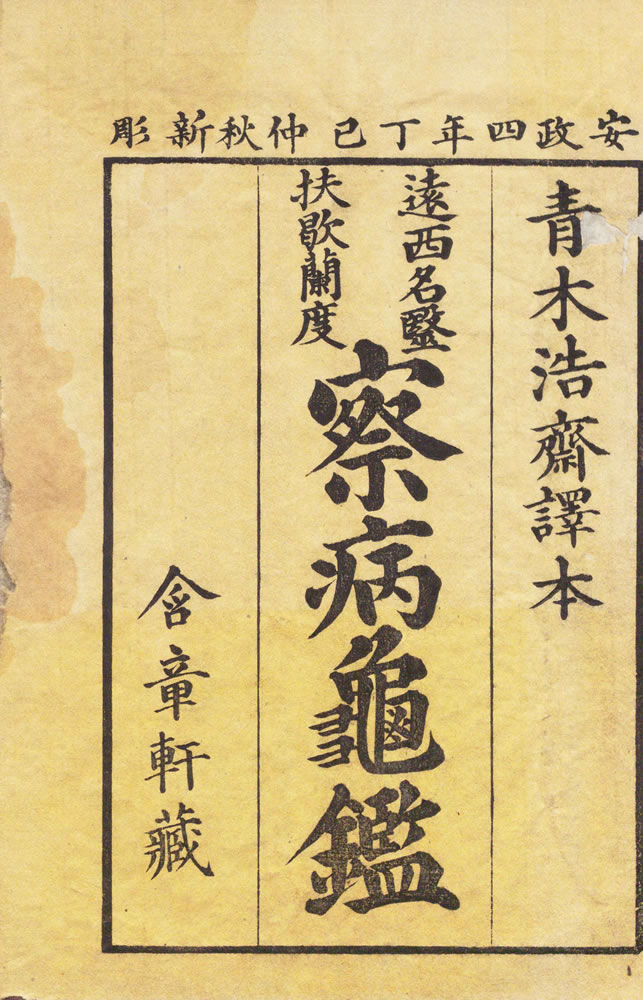 安政四年丁巳仲秋新彫
青木浩齋譯本
遠西名毉
扶歇蘭度
察病龜鑑
含章軒藏